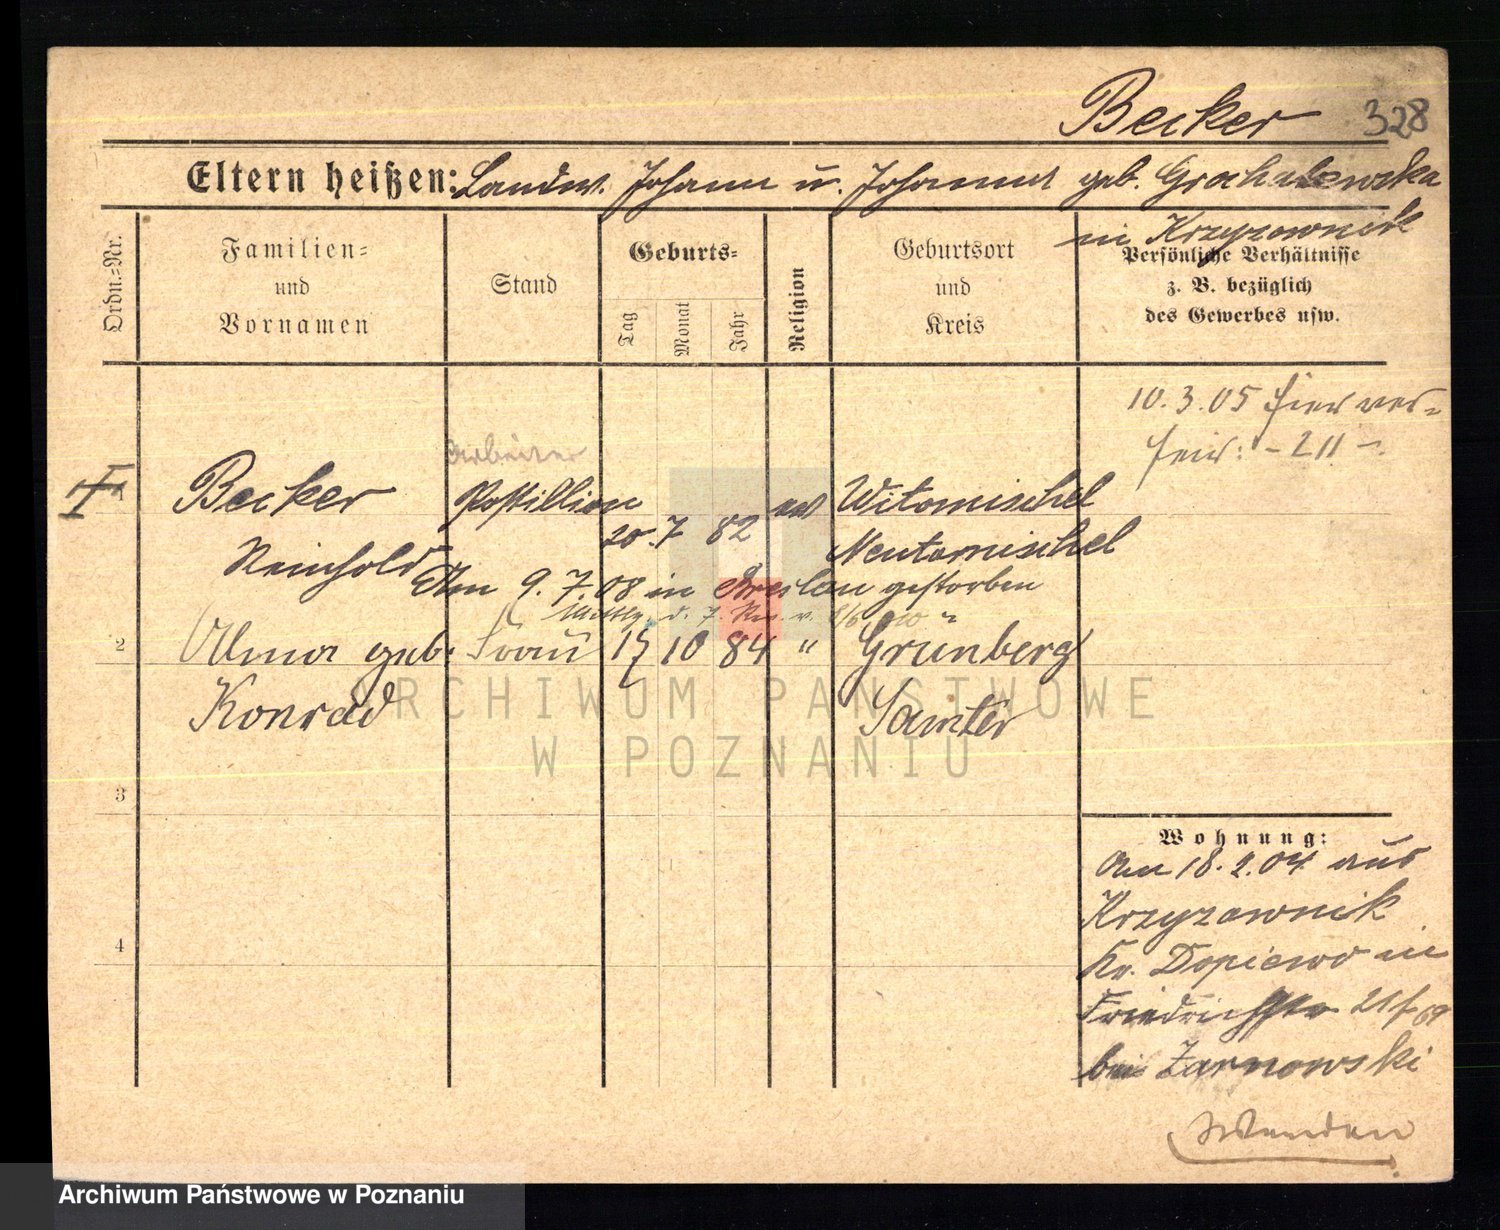 Becker 328
Eltern heißen: Landw. Johann u. Johanna geb. Grochalewska
in Krzyzownik
Ordn.-Nr.
Familien-
und
Vornamen
Stand
Geburts-
Tag
Monat
Jahr
Religion
Geburtsort
und
Kreis
Persönliche Verhältnisse
z. B. bezüglich
des Gewerbes usw.
10.3.05 hier ver-
heir: - 211 -
Arbeiter
Becker Postillion 20. 7 82 ev Witomischel
Reinhold Neutomischel
Am 9.7.08 in Breslau gestorben
2 Alma geb. Frau 17 10 84 " Grünberg
Konrad Samter
3
4
Wohnung:
Am 18.2.04 aus
Krzyzownik
Kr. Dopiewo in
Friedrichstr 21/
bei Zarnowski
Wenden
ARCHIWUM PAŃSTWOWE
W POZNANIU
Archiwum Państwowe w Poznaniu